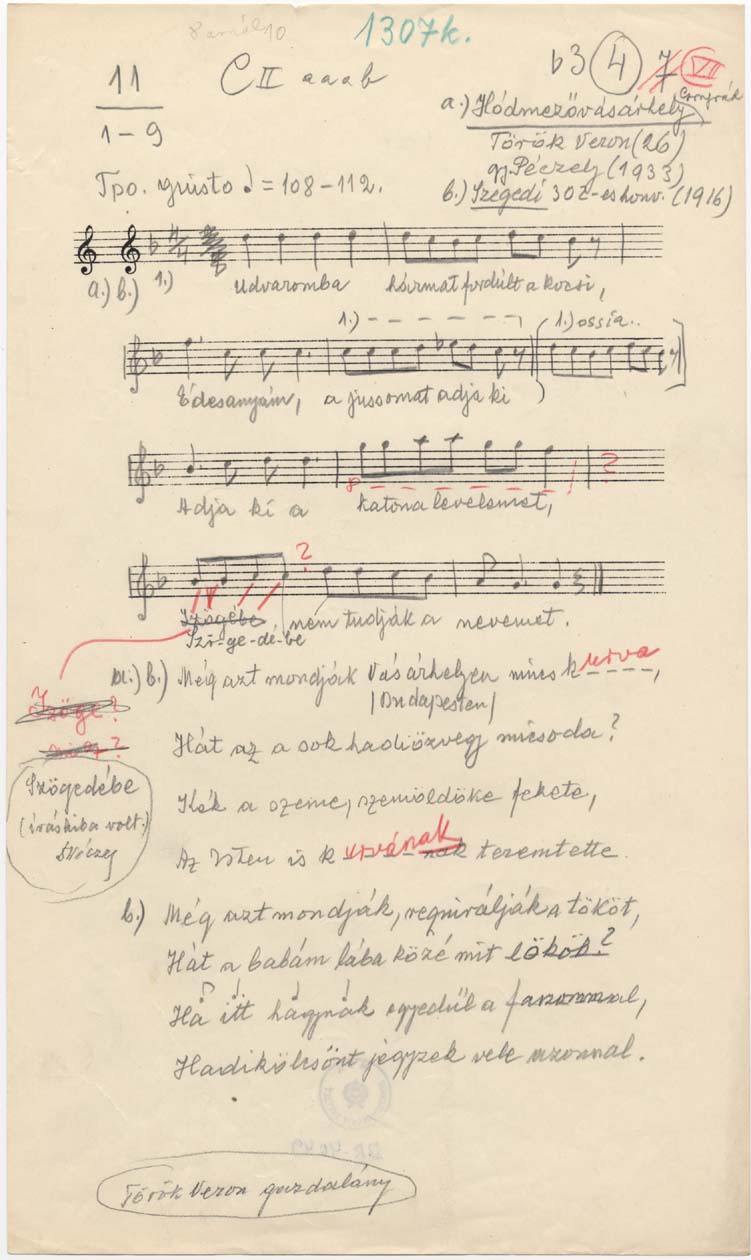 1307k.
11
1-9
C II a a a b
b3 4 7 VII
a.) Hódmezővásárhely Csongrád
Török Veron (26)
gy. Péczely (1933)
b.) Szegedi 302-es honv. (1916)
Tpo. giusto ♩ = 108-112.
a.) b.) 1.) Udvaromba hármat fordúlt a kocsi,
1.) 1.) ossia..
Édesanyám, a jussomat adja ki
8 ?
Adja ki a katona levelemet,
?
Szögébe, nem tudják a nevemet.
Szö-ge-dé-be
a.) b.) Még azt mondják Vásárhelyen nincs kurva,
/Budapesten/
Szöge?
Hát az a sok hadiözvegy micsoda?
Szögedébe
(íráshiba volt.)
Kék a szeme, szemöldöke fekete,
Az Isten is kurvának teremtette.
b.) Még azt mondják, requirálják a tököt,
Hát a babám lába közé mit lökök?
Ha itt hagynák egyedűl a faszommal,
Hadikölcsönt jegyzek vele azonnal.
Török Veron gazdalány